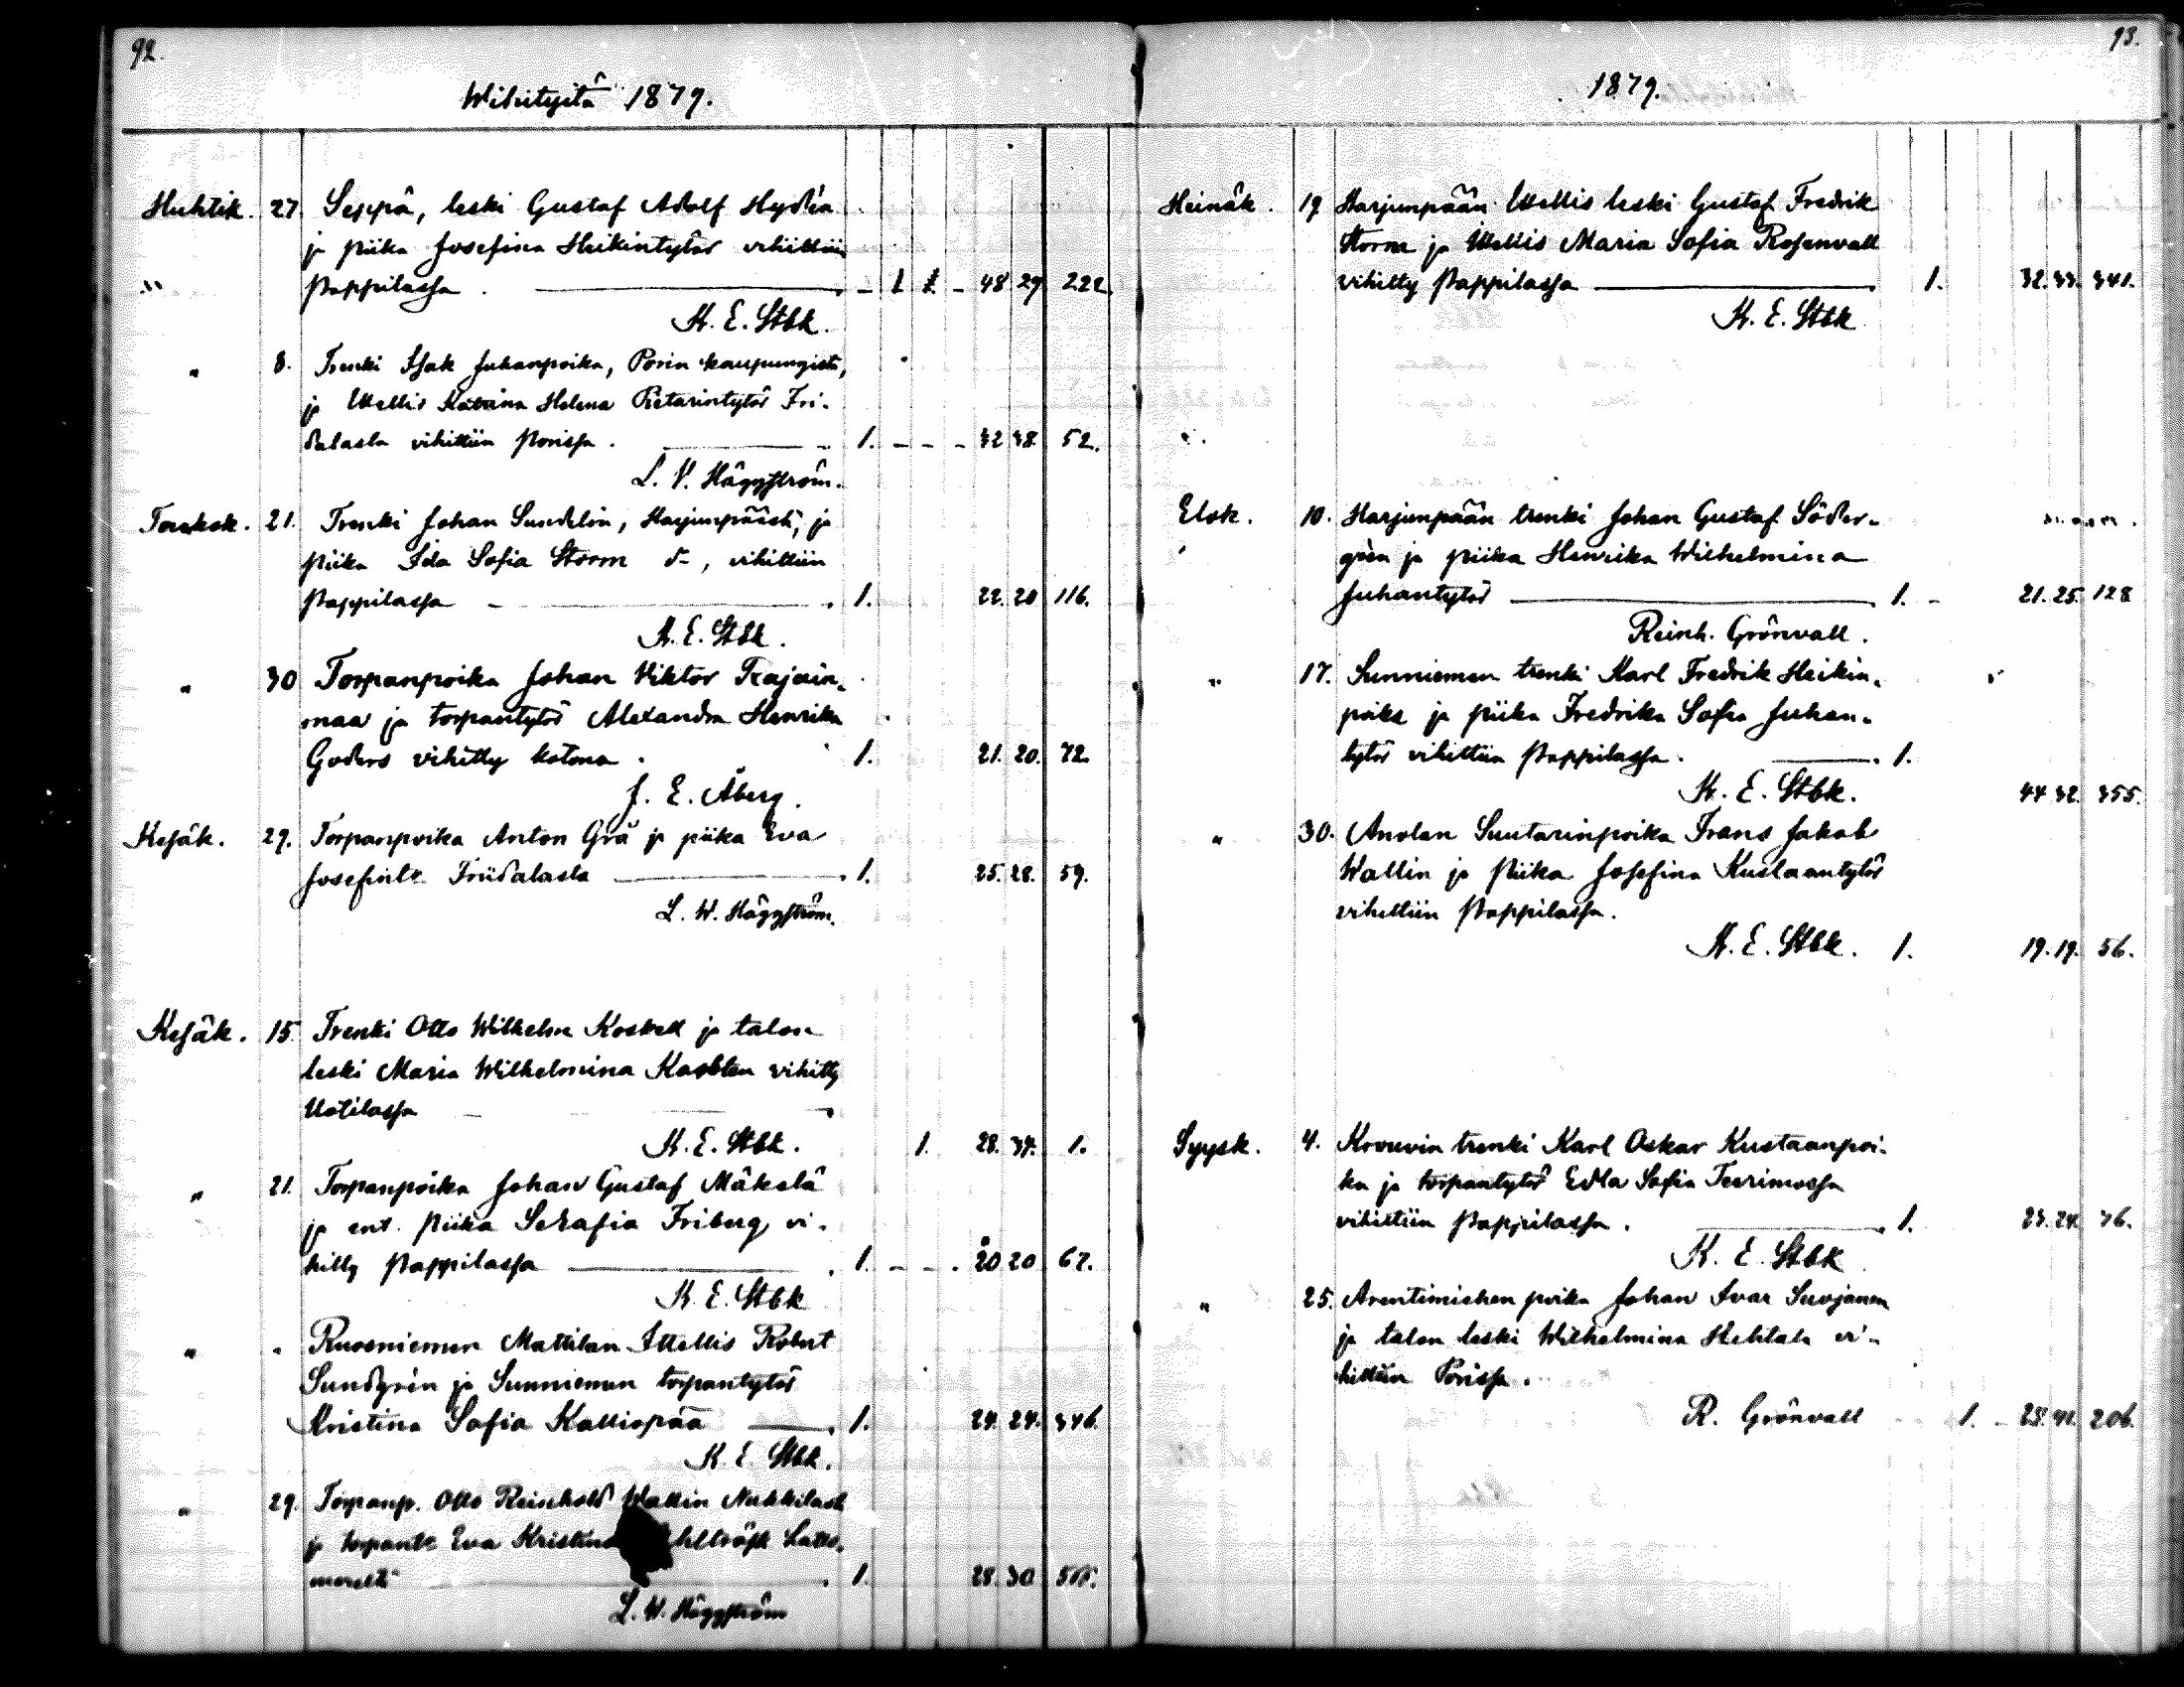 92.
Wihityitä 1879.
Huhtik. 27 Seppä, leski Gustaf Adolf Hydén
ja piika Josefina Heikintytär vihittiin
" Pappilassa . — 1 1. — 48 29 222
K. E. Stbk.
" 8. Trenki Isak Juhanpoika, Porin kaupungista,
ja Itellis Katarina Helena Pietarintytär Fri-
dalasta vihittiin Porissa. 1. — — — 32 38 52.
L. V. Häggström.
Toukok. 21. Trenki Johan Sundelin, Harjunpäästä, ja
piika Ida Sofia Storm d-, vihittiin
Pappilassa — 1. 22. 20 116.
K. E. Stbk.
" 30 Torpanpoika Johan Viktor Trajain-
maa ja torpantytär Alexandra Henrika
Goders vihitty kotona. 1. 21. 20. 72.
J. E. Åberg.
Kesäk. 29. Torpanpoika Anton Grå ja piika Eva
Josefintr Friidalasta — 1. 25. 28. 59.
L. W. Häggström.
Kesäk. 15. Trenki Otto Wilhelm Koskell ja talon
leski Maria Wilhelmina vihitty
Uotilassa
K. E. Stbk. 1. 28. 34. 1.
" 21. Torpanpoika Johan Gustaf Mäkelä
ja ent. piika Serafia Friberg vi-
hitty Pappilassa — 1. — — . 20 20 67.
K. E. Stbk
" " Ruosniemen Mattilan Itellis Robert
Sundgrén ja Sunniemen torpantytär
Kristina Sofia Kalliopää — 1. 24. 24. 346.
K. E. Stbk.
" 29. Torpanp. Otto Reinhold Wallin
ja torpantr Eva Kristina Latto-
merelta — 1. 28. 30
L. W. Häggström
93.
1879.
Heinäk. 19 Harjunpään Itellis leski Gustaf Fredrik
Storm ja Itellis Maria Sofia Rosenvall
vihitty Pappilassa — 1. 32. 33. 341.
K. E. Stbk
Elok. 10. Harjunpään trenki Johan Gustaf Söder-
grén ja piika Henrika Wilhelmina
Juhantytär — 1. — 21. 25. 128
Reinh. Grönvall.
" 17. Sunniemen trenki Karl Fredrik Heikin-
poika ja piika Fredrika Sofia Juhan-
tytär vihittiin Pappilassa. — 1.
K. E. Stbk. 44 32. 355.
" 30. Anolan Suutarinpoika Frans Jakob
Wallin ja Piika Josefina Kustaantytär
vihittiin Pappilassa.
K. E. Stbk. 1. 19. 19. 56.
Syysk. 4. Krouvin trenki Karl Oskar Kustaanpoi-
ka ja torpantytär Edla Sofia Teerimossa
vihittiin Pappilassa. — 1. 23. 24. 36.
K. E. Stbk
" 25. Arentimiehen poika Johan Ivar Suojanen
ja talon leski Wilhelmina vi-
hittiin Porissa.
R. Grönvall 1. — 28. 41. 206.